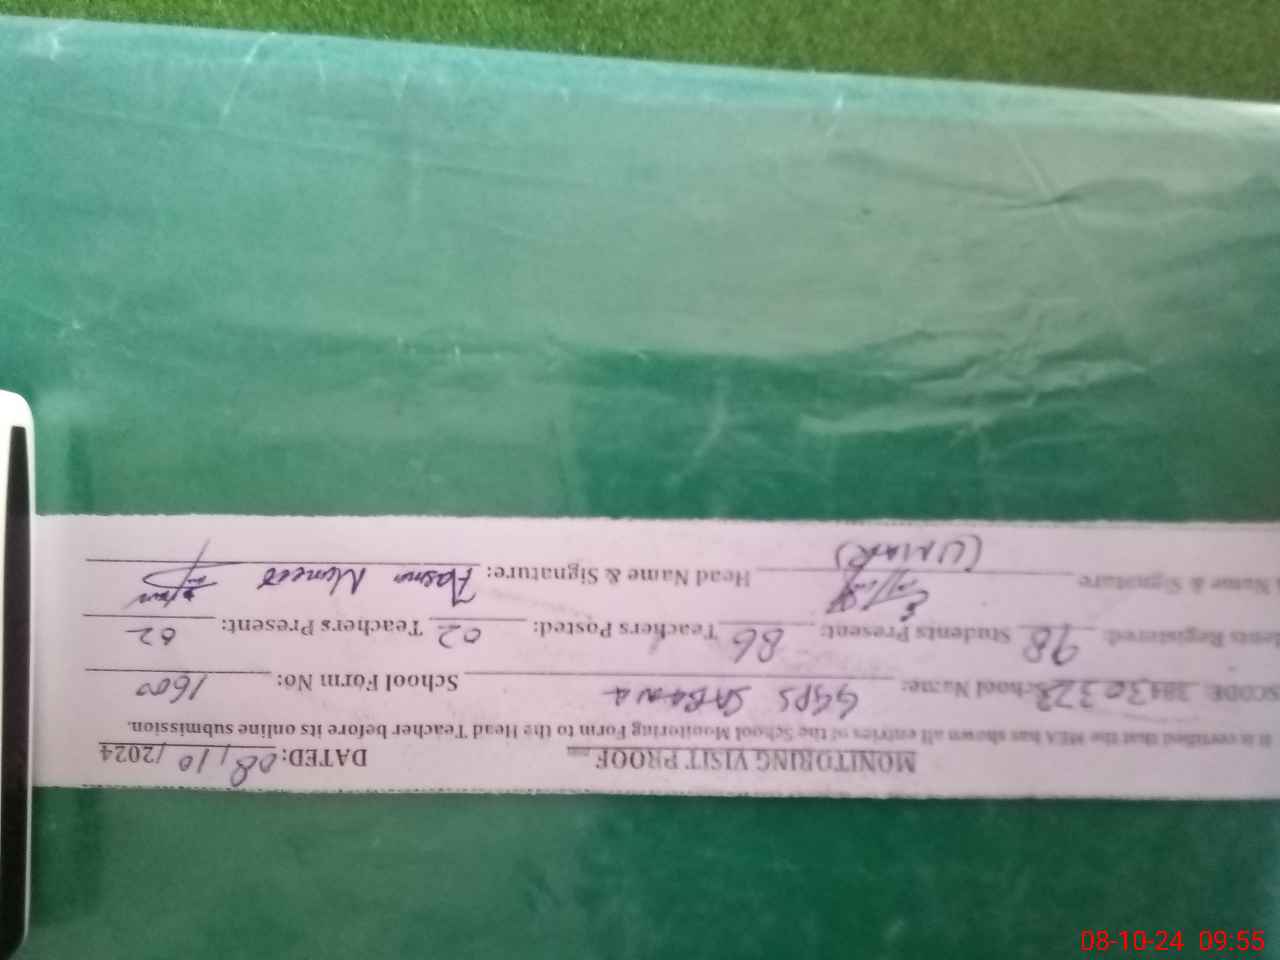 MONITORING VISIT PROOF DATED: 08/10/2024
It is certified that the MEA has shown all entries of the School Monitoring Form to the Head Teacher before its online submission.
SCODE: 38430323 School Name: GGPS School Form No: 1600
ents Registered: 98 Students Present: 86 Teachers Posted: 02 Teachers Present: 02
Name & Signature Head Name & Signature: Asma
(UMAR)
08-10-24 09:55